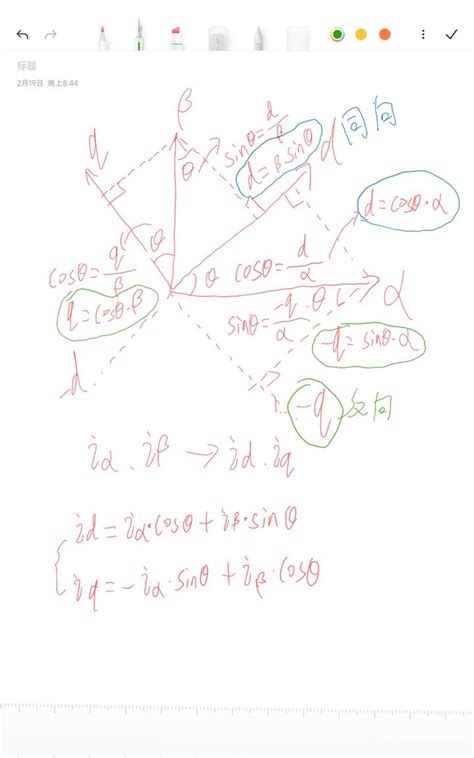 标题
2月19日 晚上8:44
β
q
θ
sinθ=d/β
d=β·sinθ
d 同向
θ
cosθ=q/β
q=cosθ·β
θ
cosθ=d/α
d=cosθ·α
α
sinθ=-q/α
θ
-q=sinθ·α
-d
-q 反向
iα.iβ→id.iq
id=iα·cosθ+iβ·sinθ
iq=-iα·sinθ+iβ·cosθ